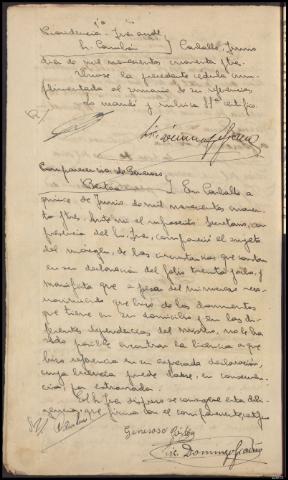 Providencia. Juez acctl
Sr. Cambón Carballo, Junio
diez de mil novecientos cuarenta y tres.
Unase la precedente cédula cum-
plimentada al sumario de su referencia
Lo mandó y rubrica Sª certifico.
Comparecencia de Generoso
Bertoa En Carballo a
quince de Junio de mil novecientos cuaren-
ta y tres. Ante mí el infrascrito Secretario, con
presencia del Sr. Juez, compareció el sujeto
del márgen, de las circunstancias que constan
en su declaración del folio treinta y ocho, y
manifiesta que a pesar del minucioso reco-
nocimiento que hizo de los documentos
que tiene en su domicilio y en las di-
ferentes dependencias del mismo, no le ha
sido posible encontrar la licencia a que
hizo referencia en su expresada declaración,
cuya licencia puede darse, en consecuen-
cia, por extraviada.
El Sr. Juez dispuso se consigne esta dili-
gencia, que firma con el compareciente, certifico
Generoso
Domingo